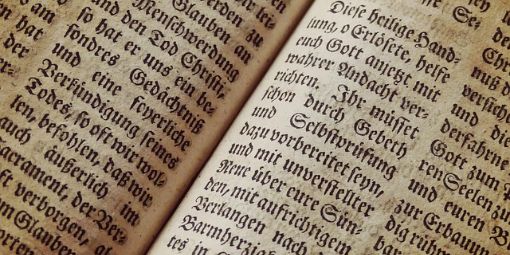 erden zu
Glauben an
Menschwerdung
und den Tod Christi,
so hat er uns ein be-
sondres Gedächtniß
und eine feyerliche
Verkündigung seines
Todes, so oft wir wol-
len, befohlen, daß wir
auch äußerlich im
Sacrament, der Ver-
ft verborgen, a
n Glauben
rten
Diese heilige Hand-
lung, o Erlösete, helfe
euch Gott anjetzt mit
wahrer Andacht ver-
richten. Ihr müsset
schon durch Gebeth
und Selbstprüfung
dazu vorbereitet seyn,
und mit unverstellter
Reue über eure Sün-
den, mit aufrichtigem
Verlangen nach
Barmherzig
tes in
nuß d
versich
und die
derfahrne
Gott zum
ren Seelen zu
und euren B
zur Erbaun
dig rühm